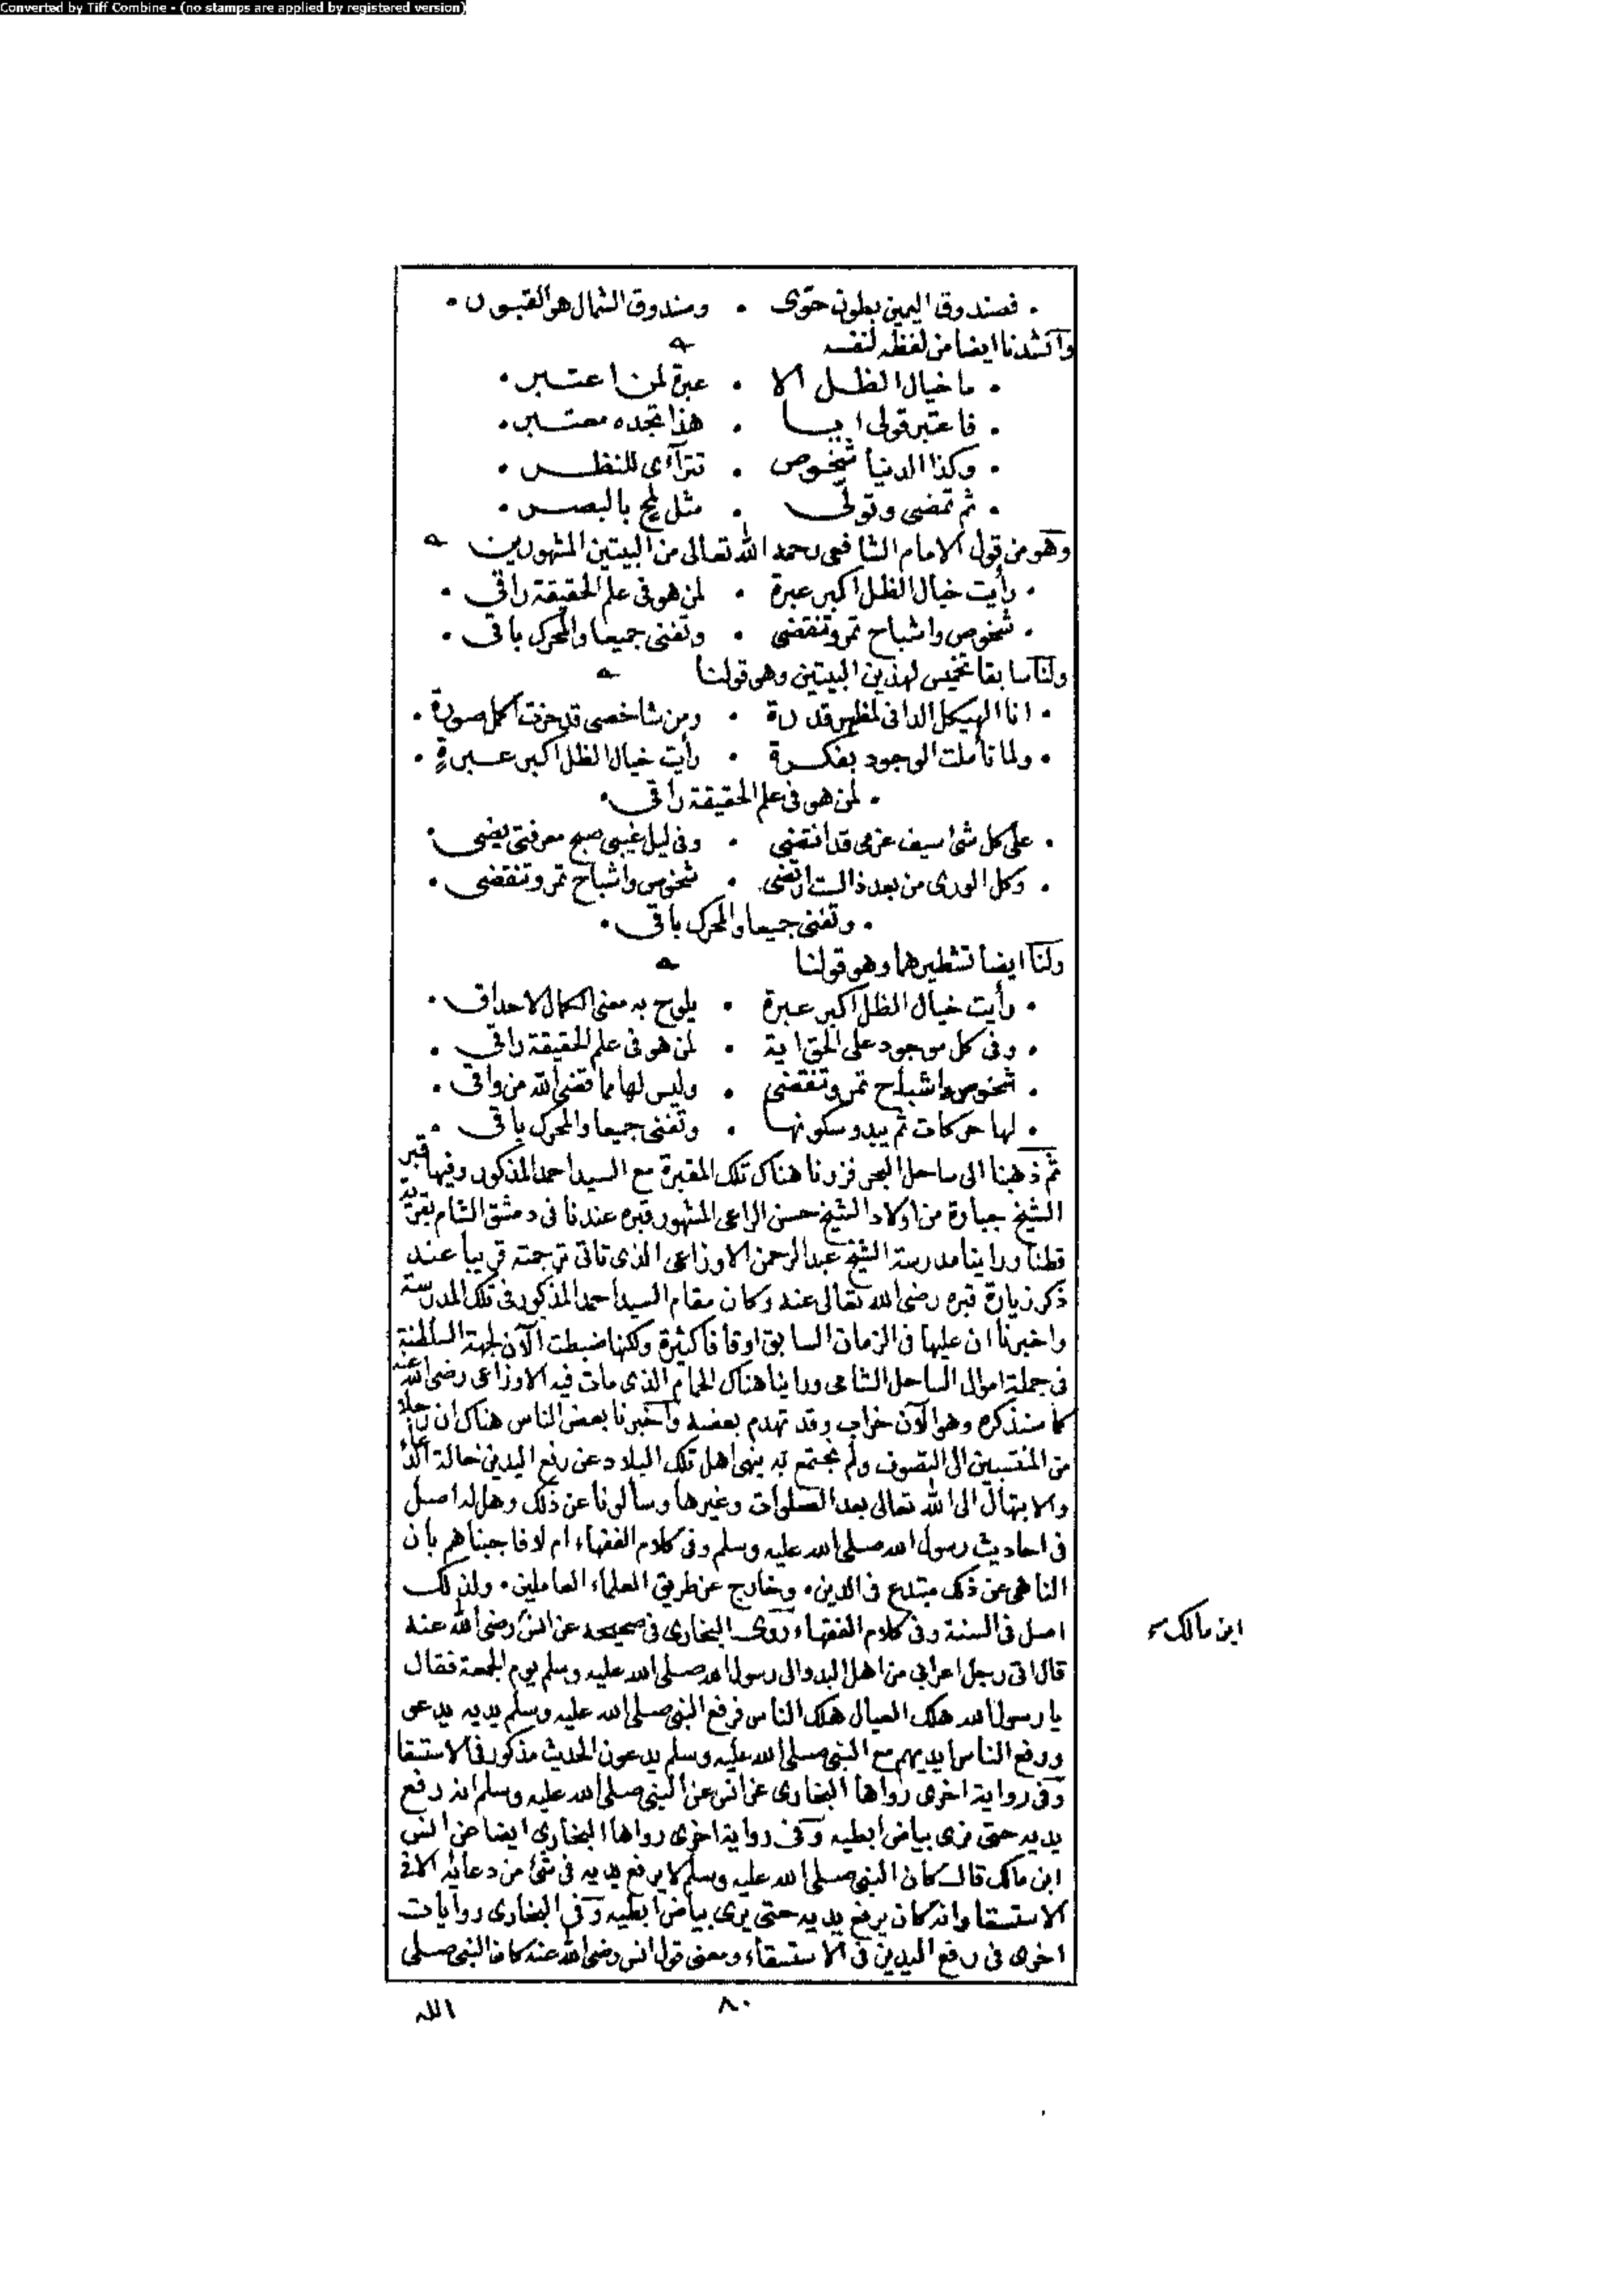 Converted by Tiff Combine - (no stamps are applied by registered version)
. فصندوق اليمين بطون حوّى . وصندوق الشمال هو القبور .
وانشدنا ايضا من لفظه لنفسه
. ما خيال الظل الا . عبرة لمن اعتبر .
. فاعتبر قولى ايا . هذا تجده معتبر .
. وكذا الدنيا شخوص . تترآءى للنظر .
. ثم تمضى وتولّى . مثل لمح بالبصر .
وهو من قول الامام الشافعى رحمه الله تعالى من البيتين المشهورين
. رأيت خيال الظل اكبر عبرة . لمن هو فى علم الحقيقة راقى .
. شخوص واشباح تمر وتنقضى . وتفنى جميعا والمحرك باقى .
ولنا سابقا تخميس لهذين البيتين وهو قولنا
. انا الهيكل الدانى لمظهر قدرة . ومن شاخصى قد حزت اكمل صورة .
. ولما تأملت الوجود بفكرة . رأيت خيال الظل اكبر عبرةٍ .
. لمن هو فى علم الحقيقة راقى .
. على كل شئ سيف عزمى قد انتضى . وفى ليل غيبى صبح معرفتى يضى .
. وكل الورى من بعد ذا الست ارتضى . شخوص واشباح تمر وتنقضى .
. وتفنى جميعا والمحرك باقى .
ولنا ايضا تشطيرهما وهو قولنا
. رأيت خيال الظل اكبر عبرة . يلوح به معنى الكمال لاحداق .
. وفى كل موجود على الحق اية . لمن هو فى علم الحقيقة راقى .
. شخوص واشباح تمر وتنقضى . وليس لها مما قضى الله من واقى .
. لها حركات ثم يبدو سكونها . وتفنى جميعا والمحرك باقى .
ثم ذهبنا الى ساحل البحر فزرنا هناك تلك المقبرة مع السيد احمد المذكور وفيها قبر
الشيخ جبارة من اولاد الشيخ حسن الراعى المشهور قبره عندنا فى دمشق الشام بقرية
قطنا وراينا مدرسة الشيخ عبد الرحمن الاوزاعى الذى تاتى ترجمته قريبا عند
ذكر زيارة قبره رضى الله تعالى عنه وكان مقام السيد احمد المذكور فى تلك المدرسة
واخبرنا ان عليها فى الزمان السابق اوقافا كثيرة ولكنها ضبطت الآن لجهة السلطنة
فى جملة اموال الساحل الشامى وراينا هناك الحمام الذى مات فيه الاوزاعى رضى الله عنه
كما سنذكره وهو الآن خراب وقد تهدم بعضه واخبرنا بعض الناس هناك ان رجلا
من المنتسبين الى التصوف ولم نجتمع به ينهى اهل تلك البلاد عن رفع اليدين حالة الدعاء
والابتهال الى الله تعالى بعد الصلوات وغيرها وسألونا عن ذلك وهل له اصل
فى احاديث رسول الله صلى الله عليه وسلم وفى كلام الفقهاء ام لا فاجبناهم بان
الناهى عن ذلك مبتدع فى الدين . وخارج عن طريق العلماء العاملين . ولذلك
اصل فى السنة وفى كلام الفقهاء روى البخارى فى صحيحه عن انس رضى الله عنه
ابن مالك
قال اتى رجل اعرابى من اهل البدو الى رسول الله صلى الله عليه وسلم يوم الجمعة فقال
يا رسول الله هلك العيال هلك الناس فرفع النبى صلى الله عليه وسلم يديه يدعو
ورفع الناس ايديهم مع النبى صلى الله عليه وسلم يدعون الحديث مذكور فى الاستسقا
وفى رواية اخرى رواها البخارى عن انس عن النبى صلى الله عليه وسلم انه رفع
يديه حتى نرى بياض ابطيه وفى رواية اخرى رواها البخارى ايضا عن انس
ابن مالك قال كان النبى صلى الله عليه وسلم لا يرفع يديه فى شئ من دعائه الا فى
الاستسقا وانه كان يرفع يديه حتى يرى بياض ابطيه وفى البخارى روايات
اخرى فى رفع اليدين فى الاستسقاء ومعنى قول انس رضى الله عنه كان النبى صلى
٨٠
الله